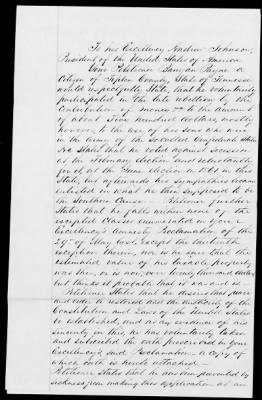 To his Excellency Andrew Johnson,
President of the United States of America
Your Petitioner Payne a
Citizen of Tipton County, State of Tennessee
would respectfully State, that he voluntarily
participated in the late rebellion by the
Contribution of money &c to the amount
of about Five hundred dollars, mostly
however, to the use of his sons who were
in the army of the so called Confederate States
He States that he voted against secession
at the February election and reluctantly
for it, at the June election in 1861 in this
State, but afterwards his sympathies became
enlisted in what he then supposed to be
the Southern Cause. Petitioner further
States that he falls within none of the
excepted Classes enumerated in your
Excellency's Amnesty Proclamation of the
29th of May last, Except the thirteenth
exception therein, nor is he sure that the
estimated value of his taxable property
was then, or is now, over twenty thousand dollars
but thinks it probable that it was and is
Petitioner States that he desires that peace
and order be restored and the authority of the
Constitution and Laws of the United States
be established, and as an evidence of his
sincerity in this, he has voluntarily taken
and subscribed the oath prescribed in your
Excellency's said Proclamation a copy of
which oath is hereto attached.
Petitioner States that he has been prevented by
sickness from making this application at an